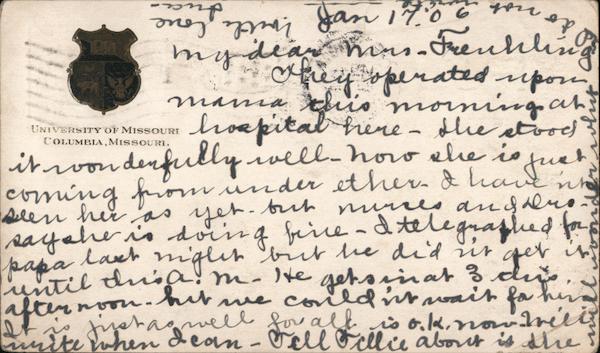 Jan 17.06
My dear Mrs. Freuhling
They operated upon
mama this morning at
hospital here - she stood
UNIVERSITY OF MISSOURI
COLUMBIA, MISSOURI.
it wonderfully well - now she is just
coming from under ether - I have n't
seen her as yet - but nurses and Drs -
say she is doing fine - I telegraphed for
papa last night but he did n't get it
until this A. M - He gets in at 3 this
afternoon - but we could n't wait for him
It is just as well for all is o.k. now - Will
write when I can - Tell Tillie about it she
will wonder why
do not
with love